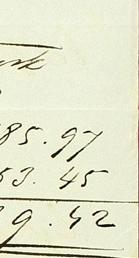 85.97
53.45
9.42